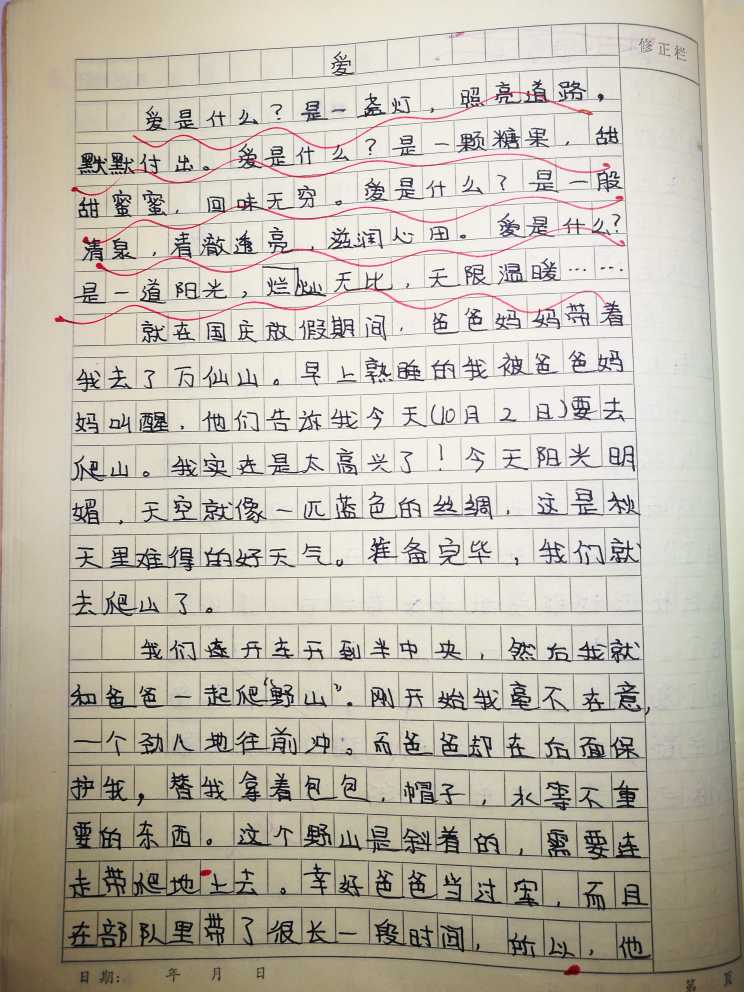 修正栏
爱
爱是什么？是一盏灯，照亮道路，
默默付出。爱是什么？是一颗糖果，甜
甜蜜蜜，回味无穷。爱是什么？是一股
清泉，清澈透亮，滋润心田。爱是什么？
是一道阳光，灿烂无比，无限温暖……
就在国庆放假期间，爸爸妈妈带着
我去了万仙山。早上熟睡的我被爸爸妈
妈叫醒，他们告诉我今天(10月2日)要去
爬山。我实在是太高兴了！今天阳光明
媚，天空就像一匹蓝色的丝绸，这是秋
天里难得的好天气。准备完毕，我们就
去爬山了。
我们连开车开到半中央，然后我就
和爸爸一起爬“野山”。刚开始我毫不在意，
一个劲儿地往前冲。而爸爸却在后面保
护我，替我拿着包包，帽子，水等不重
要的东西。这个野山是斜着的，需要连
走带爬地上去。幸好爸爸当过军，而且
在部队里带了很长一段时间，所以，他
日期： 年 月 日
第 页